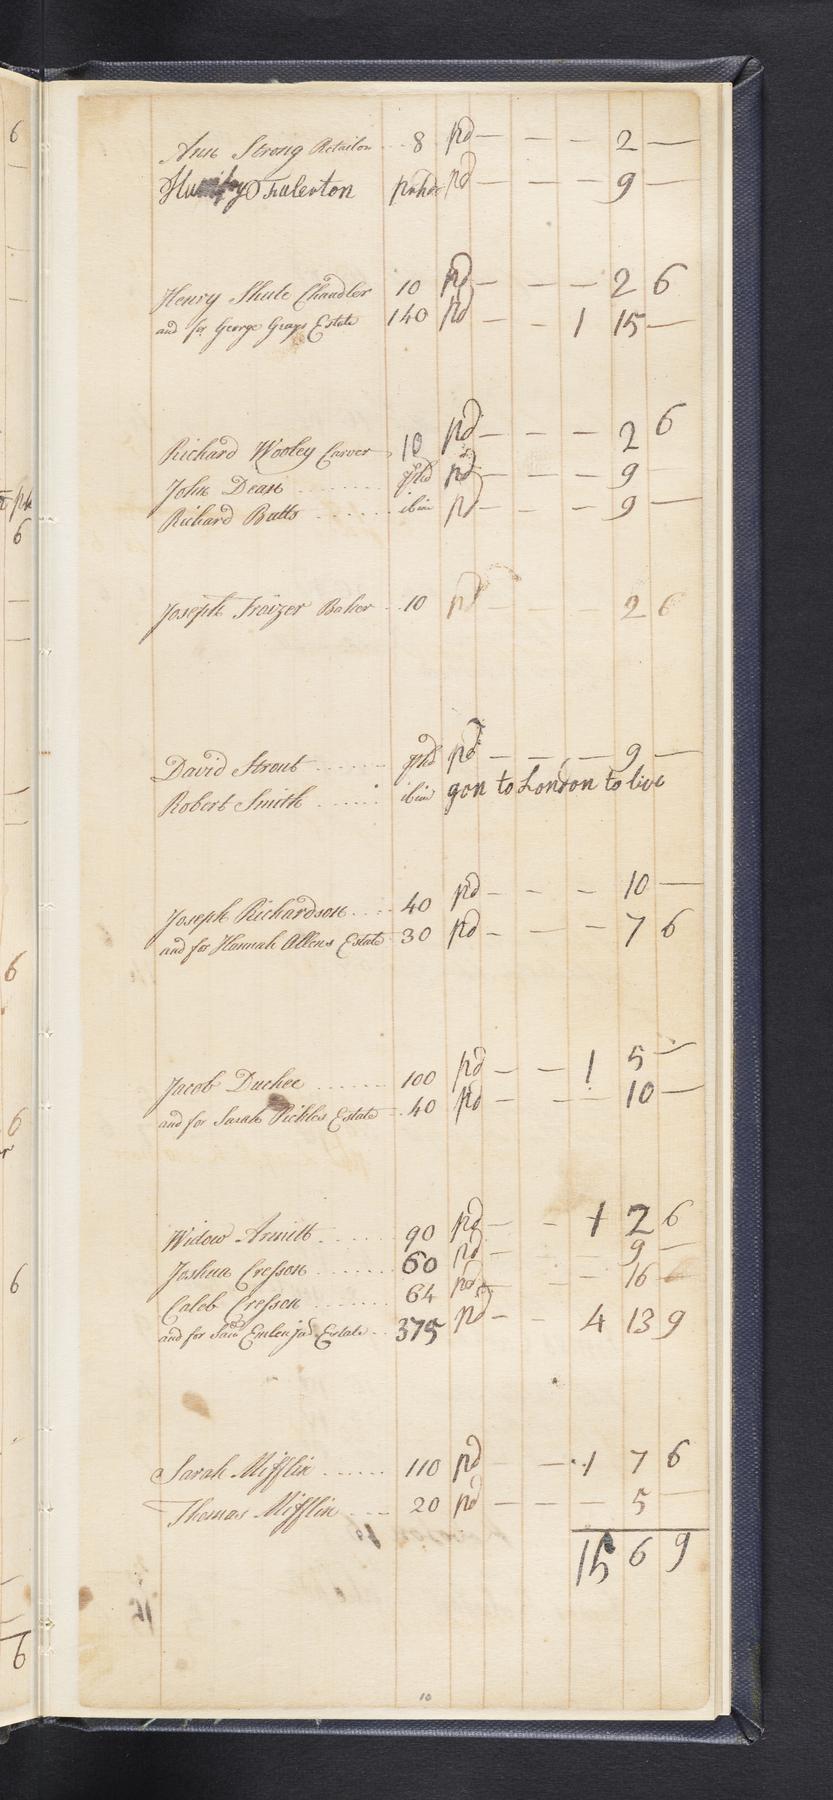 Ann Strong Retailor .. 8 pd — — — — 2 —
Fulerton pd — — — — 9 —
Henry Shute Chandler 10 pd — — — 2 6
and for George Grays Estate 140 pd — — 1 15 —
Richard Wooley Carver 10 pd — — — 2 6
John Dean ........ pd — — — 9 —
Richard Batts ....... ibim pd — — — 9 —
Joseph Fraizer Baker .. 10 pd — — — 2 6
David Strout ....... pd — — — 9 —
Robert Smith ...... ibim gon to London to live
Joseph Richardson .... 40 pd — — — 10 —
and for Hannah Allens Estate 30 pd — — — 7 6
Jacob Duchee ....... 100 pd — — 1 5 —
and for Sarah Pickles Estate .. 40 pd — — — 10 —
Widow Armitt ...... 90 pd — — 1 2 6
Joshua Cresson ....... 60 pd — — — 9 —
Caleb Cresson ....... 64 pd — — — 16 —
and for Estate .. 375 pd — — 4 13 9
Sarah Mifflin ...... 110 pd — — 1 7 6
Thomas Mifflin .... 20 pd — — — 5 —
15 6 9
10